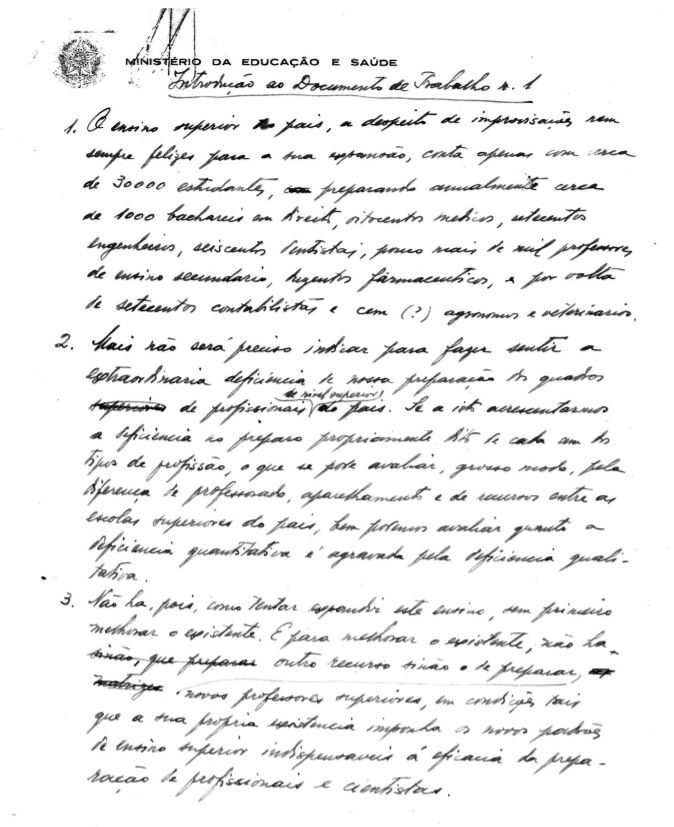 MINISTÉRIO DA EDUCAÇÃO E SAÚDE
Introdução ao Documento de Trabalho n. 1
1. O ensino superior no pais, a despeito de improvisações nem
sempre felizes para a sua expansão, conta apenas com cerca
de 30000 estudantes, preparando anualmente cerca
de 1000 bachareis em Direito, oitocentos medicos, setecentos
engenheiros, seiscentos dentistas, pouco mais de mil professores
de ensino secundario, farmaceuticos, e por volta
de setecentos contabilistas e cem (?) agronomos e veterinarios.
2. Mais não será preciso indicar para fazer sentir a
extraordinaria deficiencia de nossa preparação dos quadros
de nivel superior
superiores de profissionais do pais. Se a isto acrescentarmos
a deficiencia no preparo propriamente dito de cada um dos
tipos de profissão, o que se pode avaliar, grosso modo, pela
diferença de professorado, aparelhamento e de recursos entre as
escolas superiores do pais, bem podemos avaliar quanto a
deficiencia quantitativa é agravada pela deficiencia quali-
tativa.
3. Não ha, pois, como tentar expandir este ensino, sem primeiro
melhorar o existente. E para melhorar o existente, não ha
sinão, que preparar outro recurso sinão o de preparar,
matrizes novos professores superiores, em condições tais
que a sua propria existencia imponha os novos padrões
de ensino superior indispensaveis á eficacia da prepa-
ração de profissionais e cientistas.